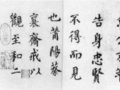 告身忠賢
不得而見
也莆陽蔡
襄齋戒以
觀至和二